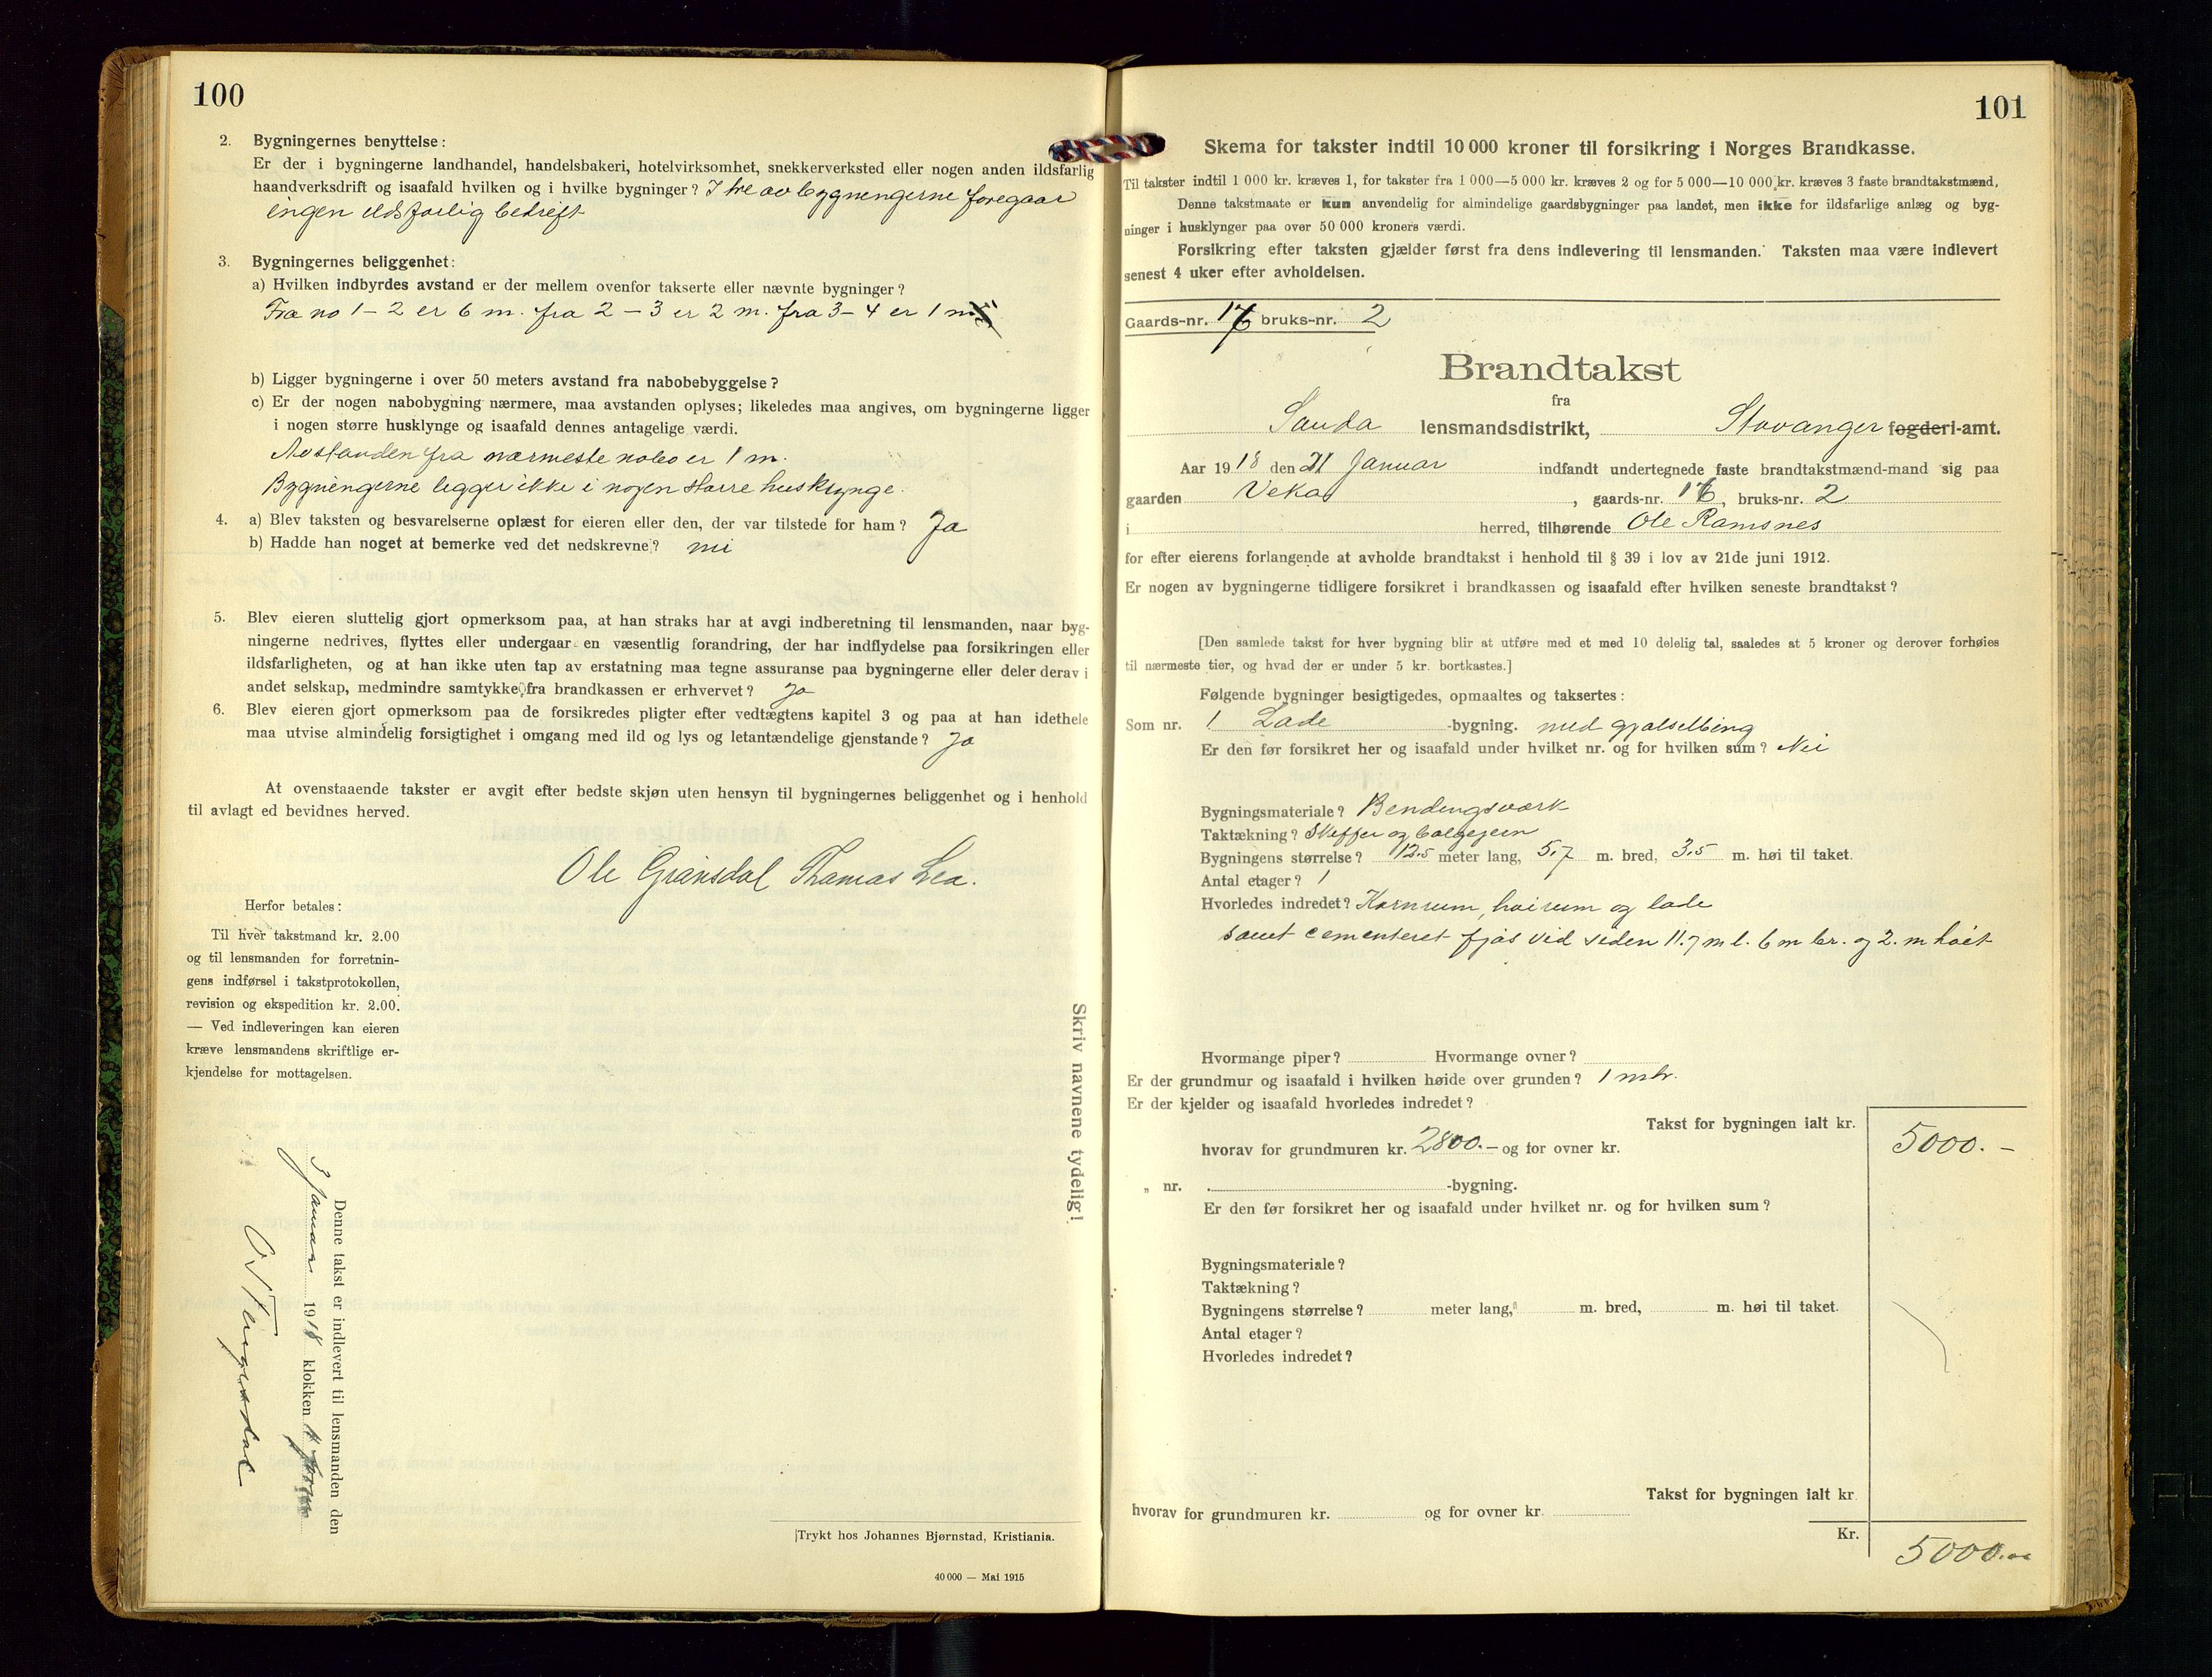 100
2. Bygningernes benyttelse:
Er der i bygningerne landhandel, handelsbakeri, hotelvirksomhet, snekkerverksted eller nogen anden ildsfarlig
haandverksdrift og isaafald hvilken og i hvilke bygninger? I tre av bygningerne foregaar
ingen ildsfarlig bedrift
3. Bygningernes beliggenhet:
a) Hvilken indbyrdes avstand er der mellem ovenfor takserte eller nævnte bygninger?
Fra no 1 - 2 er 6 m. fra 2 - 3 er 2 m. fra 3 - 4 er 1 m
b) Ligger bygningerne i over 50 meters avstand fra nabobebyggelse?
c) Er der nogen nabobygning nærmere, maa avstanden oplyses; likeledes maa angives, om bygningerne ligger
i nogen større husklynge og isaafald dennes antagelige værdi.
Avstanden fra nærmeste nabo er 1 m.
Bygningerne ligger ikke i nogen større husklynge.
4. a) Blev taksten og besvarelserne oplæst for eieren eller den, der var tilstede for ham? Ja
b) Hadde han noget at bemerke ved det nedskrevne? nei
5. Blev eieren sluttelig gjort opmerksom paa, at han straks har at avgi indberetning til lensmanden, naar byg-
ningerne nedrives, flyttes eller undergaar en væsentlig forandring, der har indflydelse paa forsikringen eller
ildsfarligheten, og at han ikke uten tap av erstatning maa tegne assuranse paa bygningerne eller deler derav i
andet selskap, medmindre samtykke fra brandkassen er erhvervet? Ja
6. Blev eieren gjort opmerksom paa de forsikredes pligter efter vedtægtens kapitel 3 og paa at han idethele
maa utvise almindelig forsigtighet i omgang med ild og lys og letantændelige gjenstande? Ja
At ovenstaaende takster er avgit efter bedste skjøn uten hensyn til bygningernes beliggenhet og i henhold
til avlagt ed bevidnes herved.
Ole Gransdal Thomas Lea.
Herfor betales:
Til hver takstmand kr. 2.00
og til lensmanden for forretnin-
gens indførsel i takstprotokollen,
revision og ekspedition kr. 2.00.
— Ved indleveringen kan eieren
kræve lensmandens skriftlige er-
kjendelse for mottagelsen.
Skriv navnene tydelig!
Denne takst er indlevert til lensmanden den
3 Januar 1918 klokken 11 form
Trykt hos Johannes Bjørnstad, Kristiania.
40 000 — Mai 1915
101
Skema for takster indtil 10 000 kroner til forsikring i Norges Brandkasse.
Til takster indtil 1 000 kr. kræves 1, for takster fra 1 000—5 000 kr. kræves 2 og for 5 000—10 000 kr. kræves 3 faste brandtakstmænd.
Denne takstmaate er kun anvendelig for almindelige gaardsbygninger paa landet, men ikke for ildsfarlige anlæg og byg-
ninger i husklynger paa over 50 000 kroners værdi.
Forsikring efter taksten gjælder først fra dens indlevering til lensmanden. Taksten maa være indlevert
senest 4 uker efter avholdelsen.
Gaards-nr. 16 bruks-nr. 2
Brandtakst
fra
Sauda lensmandsdistrikt, Stavanger fogderi-amt.
Aar 1918 den 21 Januar indfandt undertegnede faste brandtakstmænd-mand sig paa
gaarden Veka, gaards-nr. 16, bruks-nr. 2
i herred, tilhørende Ole Ramsnes
for efter eierens forlangende at avholde brandtakst i henhold til § 39 i lov av 21de juni 1912.
Er nogen av bygningerne tidligere forsikret i brandkassen og isaafald efter hvilken seneste brandtakst?
[Den samlede takst for hver bygning blir at utføre med et med 10 delelig tal, saaledes at 5 kroner og derover forhøies
til nærmeste tier, og hvad der er under 5 kr. bortkastes.]
Følgende bygninger besigtigedes, opmaaltes og taksertes:
Som nr. 1 Lade -bygning. med gjødselbing
Er den før forsikret her og isaafald under hvilket nr. og for hvilken sum? Nei
Bygningsmateriale? Bendingsværk
Taktækning? Skiffer og bølgejern
Bygningens størrelse? 12.5 meter lang, 5.7 m. bred, 3.5 m. høi til taket.
Antal etager? 1
Hvorledes indredet? Kornrum, høirum og lade
samt cementeret fjøs ved siden 11.7 m l. 6 m br. og 2. m høit
Hvormange piper? Hvormange ovner?
Er der grundmur og isaafald i hvilken høide over grunden? 1 mtr.
Er der kjelder og isaafald hvorledes indredet?
Takst for bygningen ialt kr.
hvorav for grundmuren kr. 2800.- og for ovner kr. 5000.-
„ nr. -bygning.
Er den før forsikret her og isaafald under hvilket nr. og for hvilken sum?
Bygningsmateriale?
Taktækning?
Bygningens størrelse? meter lang, m. bred, m. høi til taket.
Antal etager?
Hvorledes indredet?
Takst for bygningen ialt kr.
hvorav for grundmuren kr. og for ovner kr.
Kr. 5000.00